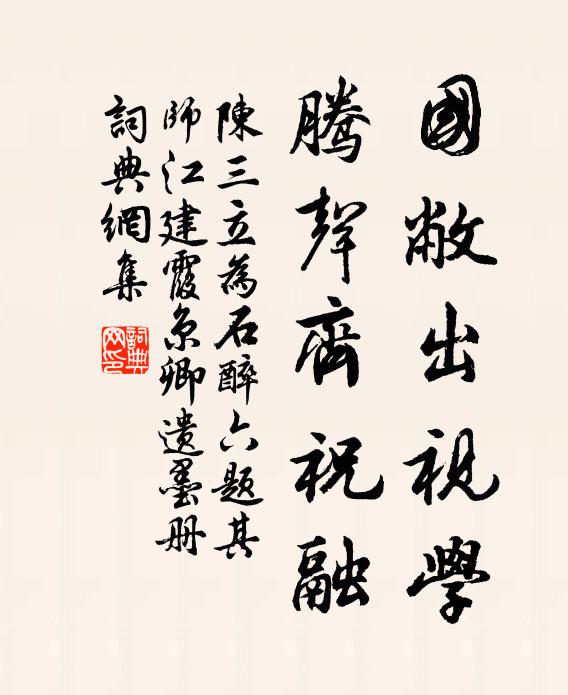 國敝出視學
騰聲齊祝融
陳三立為石醉六題其
師江建霞京卿遺墨册
詞典網集
詞典網印